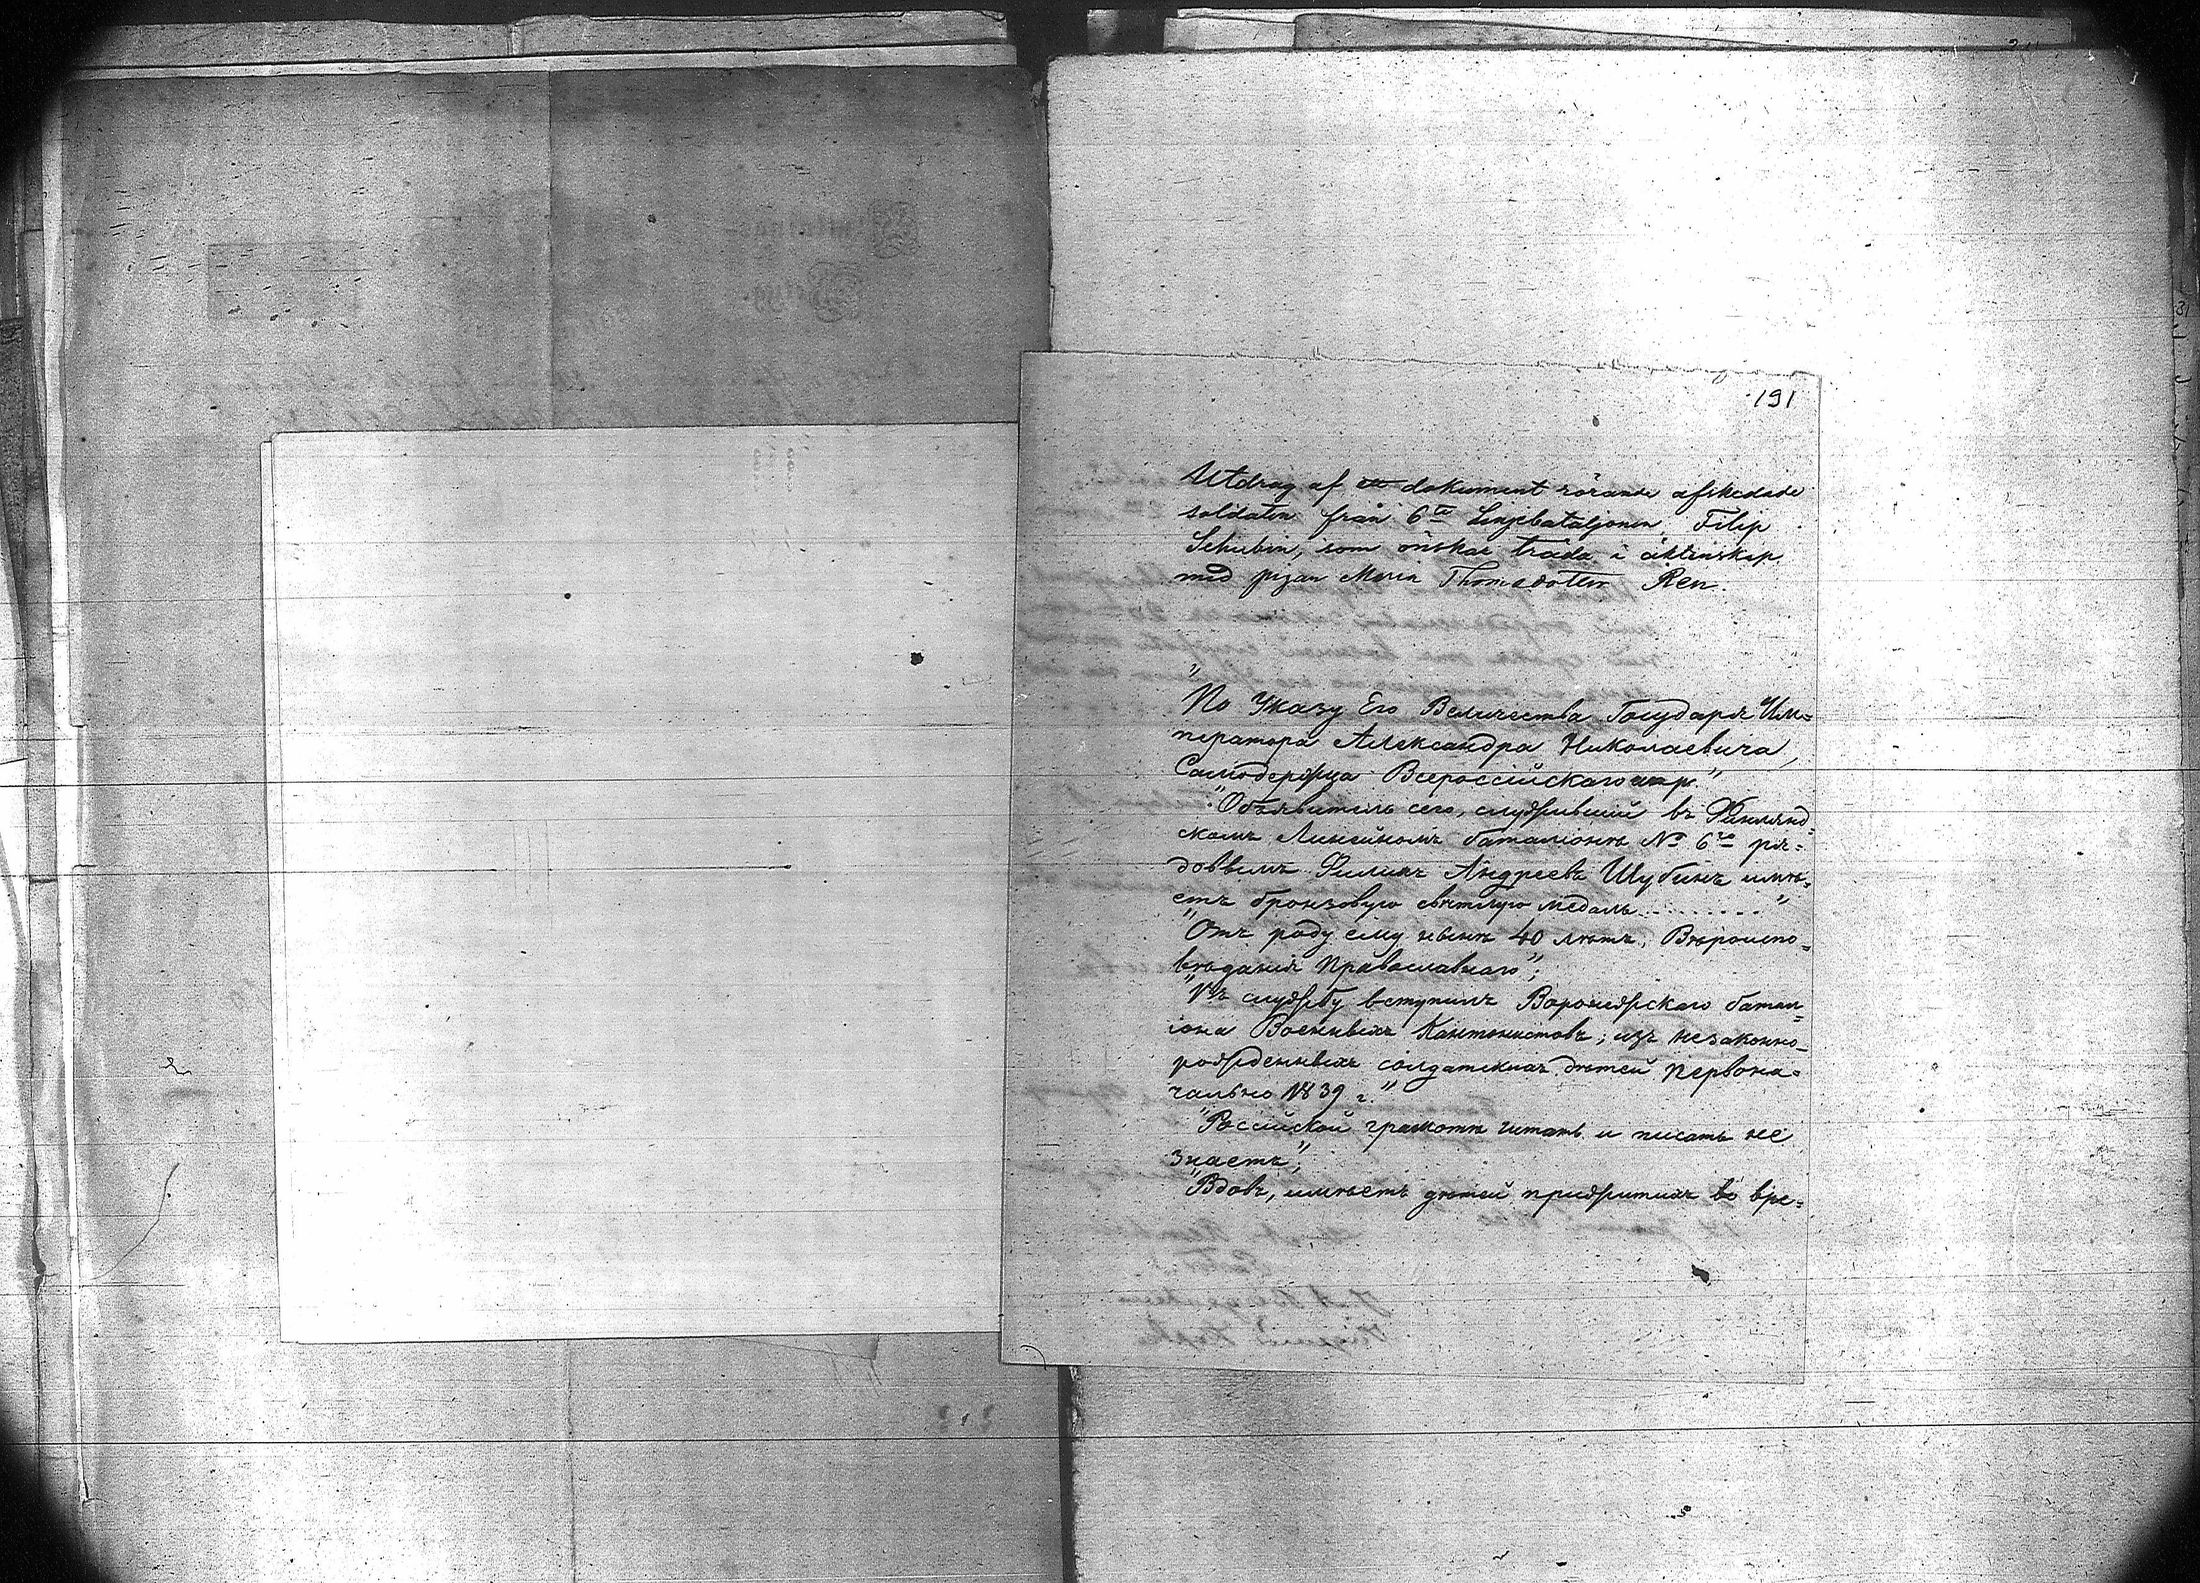 191
Utdrag af dokument rörande afskedade
soldaten från 6te Linjebataljonen Filip
Schubin, som önskar träda i äktenskap
med pigan Maria Thomedotter Ren.
"По Указу Его Величества Государя Им=
ператора Александра Николаевича,
Самодержца Всероссійскаго и пр."
"Объявитель сего, служившій въ Финлянд=
скомъ Линейномъ баталіонѣ № 6го ря=
довымъ Филипъ Андреевъ Шубинъ имѣ=
етъ бронзовую свѣтлую медаль........."
"Отъ роду ему нынѣ 40 лѣтъ, Вѣроиспо=
вѣданія Православнаго";
"Въ службу вступилъ Воронежскаго батал=
іона Военныхъ Кантонистовъ; изъ незаконно=
рожденныхъ солдатскихъ дѣтей первона=
чально 1839 г."
"Россійской грамотѣ читать и писать не
знаетъ",
"Вдовъ, имѣетъ дѣтей прижитыхъ во вре=